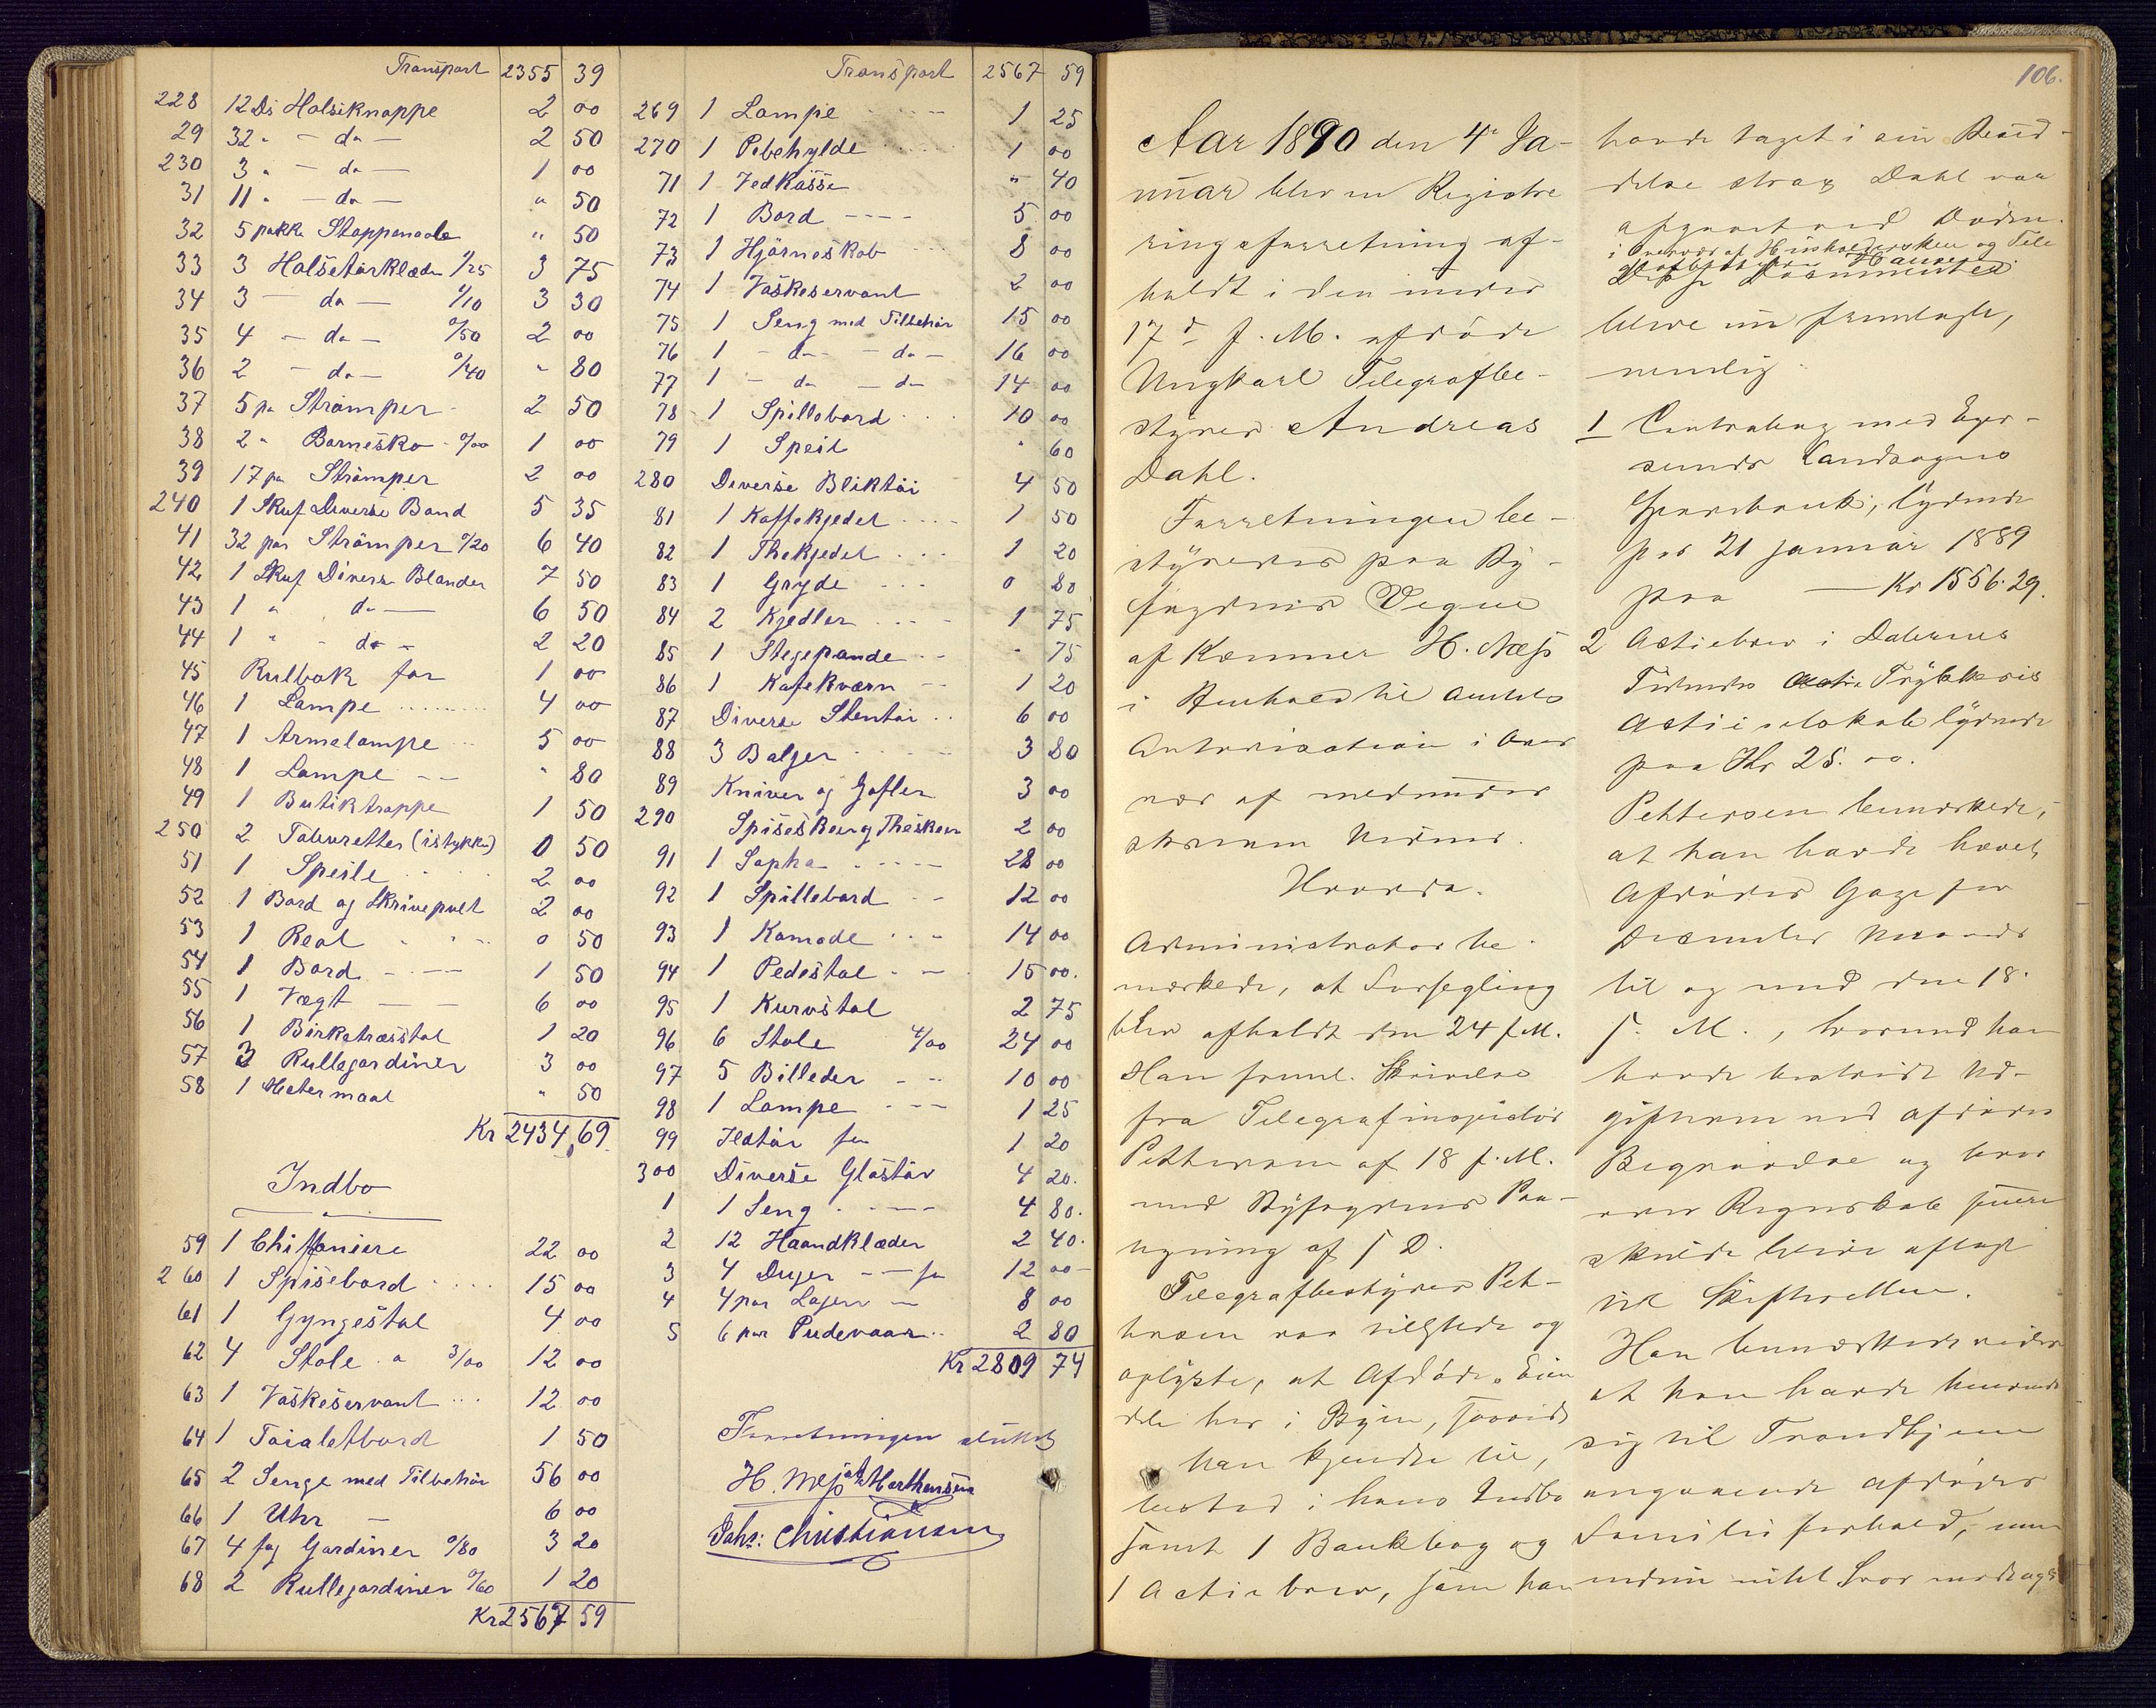 Transport 2355 39
228 12 Ds Halsiknappe 2 00
29 32 " - do - 2 50
230 3 " - do - 1 00
31 11 " - do - " 50
32 5 pakke Stoppenaale " 50
33 3 Halsetørklæder 1/25 3 75
34 3 - do - 1/10 3 30
35 4 - do - 0/50 2 00
36 2 - do - 0/40 " 80
37 5 pr Strømper 2 50
38 2 " Barnesko 1 00
39 17 pr Strømper 2 00
240 1 Skuf Diverse Baand 5 35
41 32 par Strømper 0/20 6 40
42 1 Skuf Diverse Blonder 7 50
43 1 " do - 6 50
44 1 " - do - 2 20
45 Rulbak for 1 00
46 1 Lampe 4 00
47 1 Armalampe 5 00
48 1 Lampe " 80
49 1 Butiktrappe 1 50
250 2 Tabouretter (istykke) 0 50
51 1 Speile 2 00
52 1 Bord og Skrivepult 2 00
53 1 Real 0 50
54 1 Bord 1 50
55 1 Vægt 6 00
56 1 Birketræsstol 1 20
57 3 Rullegardiner 3 00
58 1 Metermaal " 50
Kr 2434,69
Indbo
59 1 Chiffoniere 22 00
260 1 Spisebord 15 00
61 1 Gyngestol 4 00
62 4 Stole a 3/00 12 00
63 1 Vaskeservant 12 00
64 1 Toialetbord 1 50
65 2 Senge med Tilbehør 56 00
66 1 Uhr 6 00
67 4 fag Gardiner 0/80 3 20
68 2 Rullegardiner 0/60 1 20
Kr 2567 59
Transport 2567 59
269 1 Lampe 1 25
270 1 Pibehylde 1 00
71 1 Vedkasse " 40
72 1 Bord 5 00
73 1 Hjørneskab 8 00
74 1 Vaskeservant 2 00
75 1 Seng med Tilbehør 15 00
76 1 - do - do - 16 00
77 1 - do - do 14 00
78 1 Spillebord 10 00
79 1 Speil " 60
280 Diverse Bliktøi 4 50
81 1 Kaffekjedel 1 50
82 1 Thekjedel 1 20
83 1 Gryde 0 80
84 2 Kjedler 1 75
85 1 Stegepande " 75
86 1 Kafekværn 1 20
87 Diverse Stentøi 6 00
88 3 Baljer 3 80
89 Kniver og Gafler 3 00
290 Spiseskeer og Theskeer 2 00
91 1 Sopha 28 00
92 1 Spillebord 12 00
93 1 Komode 14 00
94 1 Pedestal 15 00.
95 1 Kurvstol 2 75
96 6 Stole 4/00 24 00
97 5 Billeder 10 00
98 1 Lampe 1 25
99 Ildtøi for 1 20
300 Diverse Glastøi 4 20.
1 1 Seng 4 80.
2 12 Haandklæder 2 40.
3 4 Duger 12 00
4 4 par Lagen 8 00
5 6 par Pudevaar 2 80
Kr 2809 74
Forretningen sluttet
H. Næss Marthensen
Johs: Christiansen
106.
Aar 1890 den 4de Ja-
nuar blev en Registre
ringsforretning af-
holdt i den under
17de f. M. afdøde
Ungkarl Telegrafbe-
styrer Andreas
Dahl.
Forretningen be-
styredes paa By-
fogdens Vegne
af Kemner H. Næss
i Henhold til Amtets
Autorisation i Over
vær af medunder
skrevne Vidner.
Hvorda.
Administrator be
mærkede, at Forsegling
blev afholdt den 24 f.M.
Han freml. Skrivelse
fra Telegrafinspektør
Pettersen af 18 f.M.
med Byfogdens Paa-
tegning af s. D.
Telegrafbestyrer Pet-
tersen var tilstede og
oplyste, at Afdødes Eien
dele her i Byen, saavidt
han kjendte til,
bestod i hans Indbo
samt 1 Bankbog og
1 Actiebrev, som han
havde taget i sin Besid-
delse strax Dahl var
afgaaet ved Døden.
i Overvær af Husholdersken og Tele
Disse Documenter
bleve nu fremlagte,
nemlig
1 Contrabog med Eger-
sunds Landsogns
Sparebank, lydende
pr 21 januar 1889
paa Kr 1556.29.
2 Actiebrev i Dalernes
Tidendes Trykkeris
Actieselskab lydende
paa Kr 25.00.
Pettersen bemærkede,
at han havde hævet
Afdødes Gage for
December Maaned
til og med den 18.
s. M., hvormed han
havde bestridt Ud-
gifterne ved afdødes
Begravelse og hvor
over Regnskab senere
skulde blive aflagt
til Skifteretten.
Han bemærkede videre
at han havde henvendt
sig til Trondhjem
angaaende afdødes
Familieforhold, men
endnu intet Svar modtaget